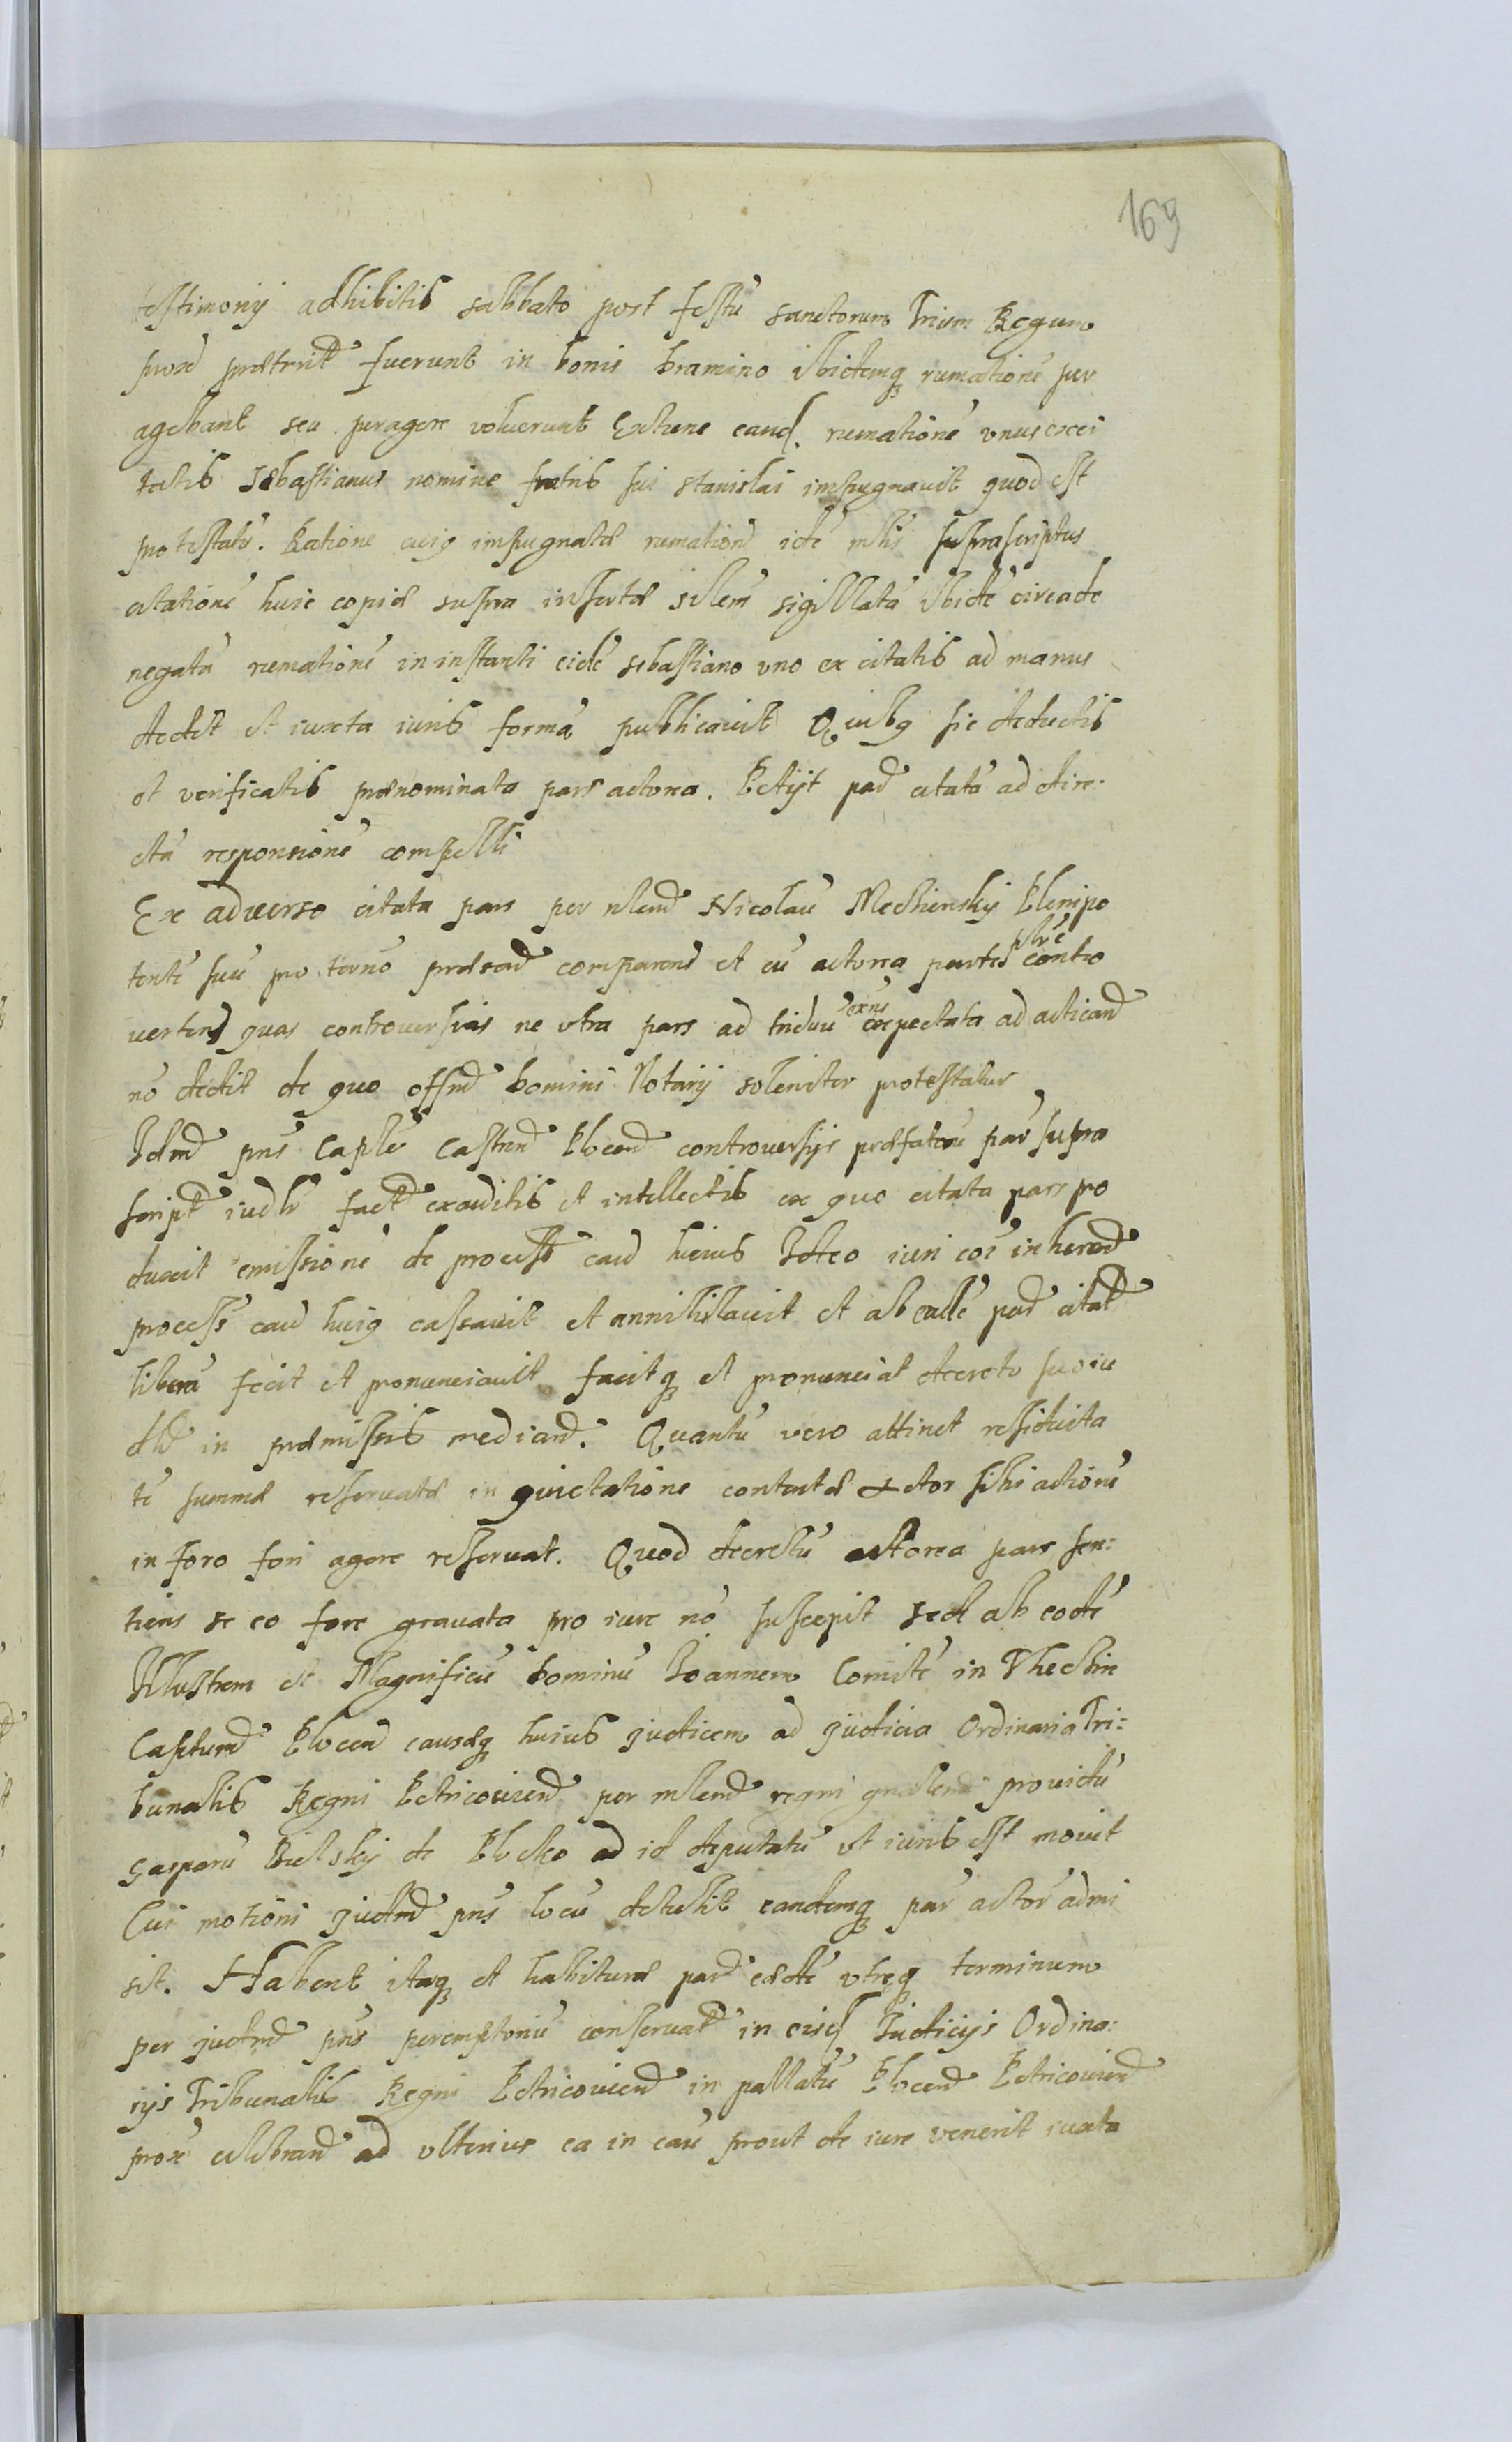 169
testimonij adhibitis sabbato post festu sanctorum Trium Regum
prox praeterit fuerunt in bonis bramino ibidemq rumatione per
agebant seu peragere voluerunt Extunc eand. rumatione unus ex ci
tatis Sebastianus nomine fratris sui Stanislai impugnavit quod est
protestatu. Ratione cuiq impugnatae rumation ide mlis suprascriptus
citatione huic copiae supra insertae silem sigillata ibide circa de
negata rumatione in instanti eide Sebastiano uno ex citatis ad manus
dedit et iuxta iuris forma publicavit Quibq sic deductis
et verificatis praenominata pars actorea. Petijt pad citata ad dire:
cta responsione compelli
Ex adverso citata pars per nlem Nicolau Mechinskij Plenipo
tente suu pro terno praesen comparens et cu actorea parte contro
vertens quas controversias ne utra pars ad triduu expectata ad acticand
no dedit de quo offnd Domini Notarij soleniter protestatur
Idmd pns Caple Castren Plocen controversijs praefataru par supra
script iudlr fact exauditis et intellectis ex quo citata pars pro
duxit emissione de processu cau huius Ideo iuri coi inherend
processu cau huiq cassavit et annihilavit et ab ealle pad citat
libera fecit et pronunciavit facitq et pronunciat decreto suo iu
dld in praemissis mediand. Quantu vero attinet residuita
te summae reservatae in quietatione contentae Actor sibi actione
in foro fori agere reservat. Quod decretu actorea pars sen:
tiens se eo fore gravata pro iure no suscepit sed ab eode
Illustrem et Magnificu Dominu Ioannem Comite in Thechin
Capitund Plocen causaeq huius judicem ad judicia Ordinaria Tri:
bunalis Regni Petricovien per mlem regni gnalem providu
Gasparu Bielskij de Plocko ad id deputatu ut iuris est movit
Cui motioni judmd pns locu detulit eandemq par actor admi
sit. Habent itaq et habiturae pad eaede utreq terminum
per judmd pns peremptoriu conservat in eisd Judicijs Ordina:
rijs Tribunalis Regni Petricovien in pallatu Plocen Petricovien
prox celebrand ad ulterius ea in cau prout de iure venerit iuxta